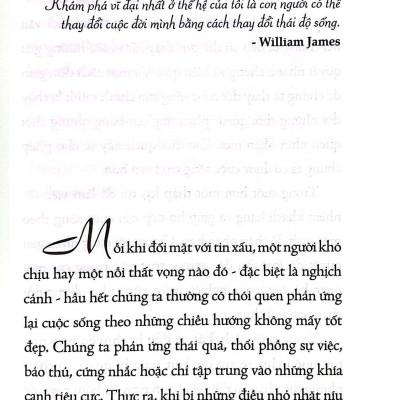 Khám phá vĩ đại nhất ở thế hệ của tôi là con người có thể
thay đổi cuộc đời mình bằng cách thay đổi thái độ sống.
- William James
Mỗi khi đối mặt với tin xấu, một người khó
chịu hay một nỗi thất vọng nào đó - đặc biệt là nghịch
cảnh - hầu hết chúng ta thường có thói quen phản ứng
lại cuộc sống theo những chiều hướng không mấy tốt
đẹp. Chúng ta phản ứng thái quá, thổi phồng sự việc,
bảo thủ, cứng nhắc hoặc chỉ tập trung vào những khía
cạnh tiêu cực. Thực ra, khi bị những điều nhỏ nhặt níu